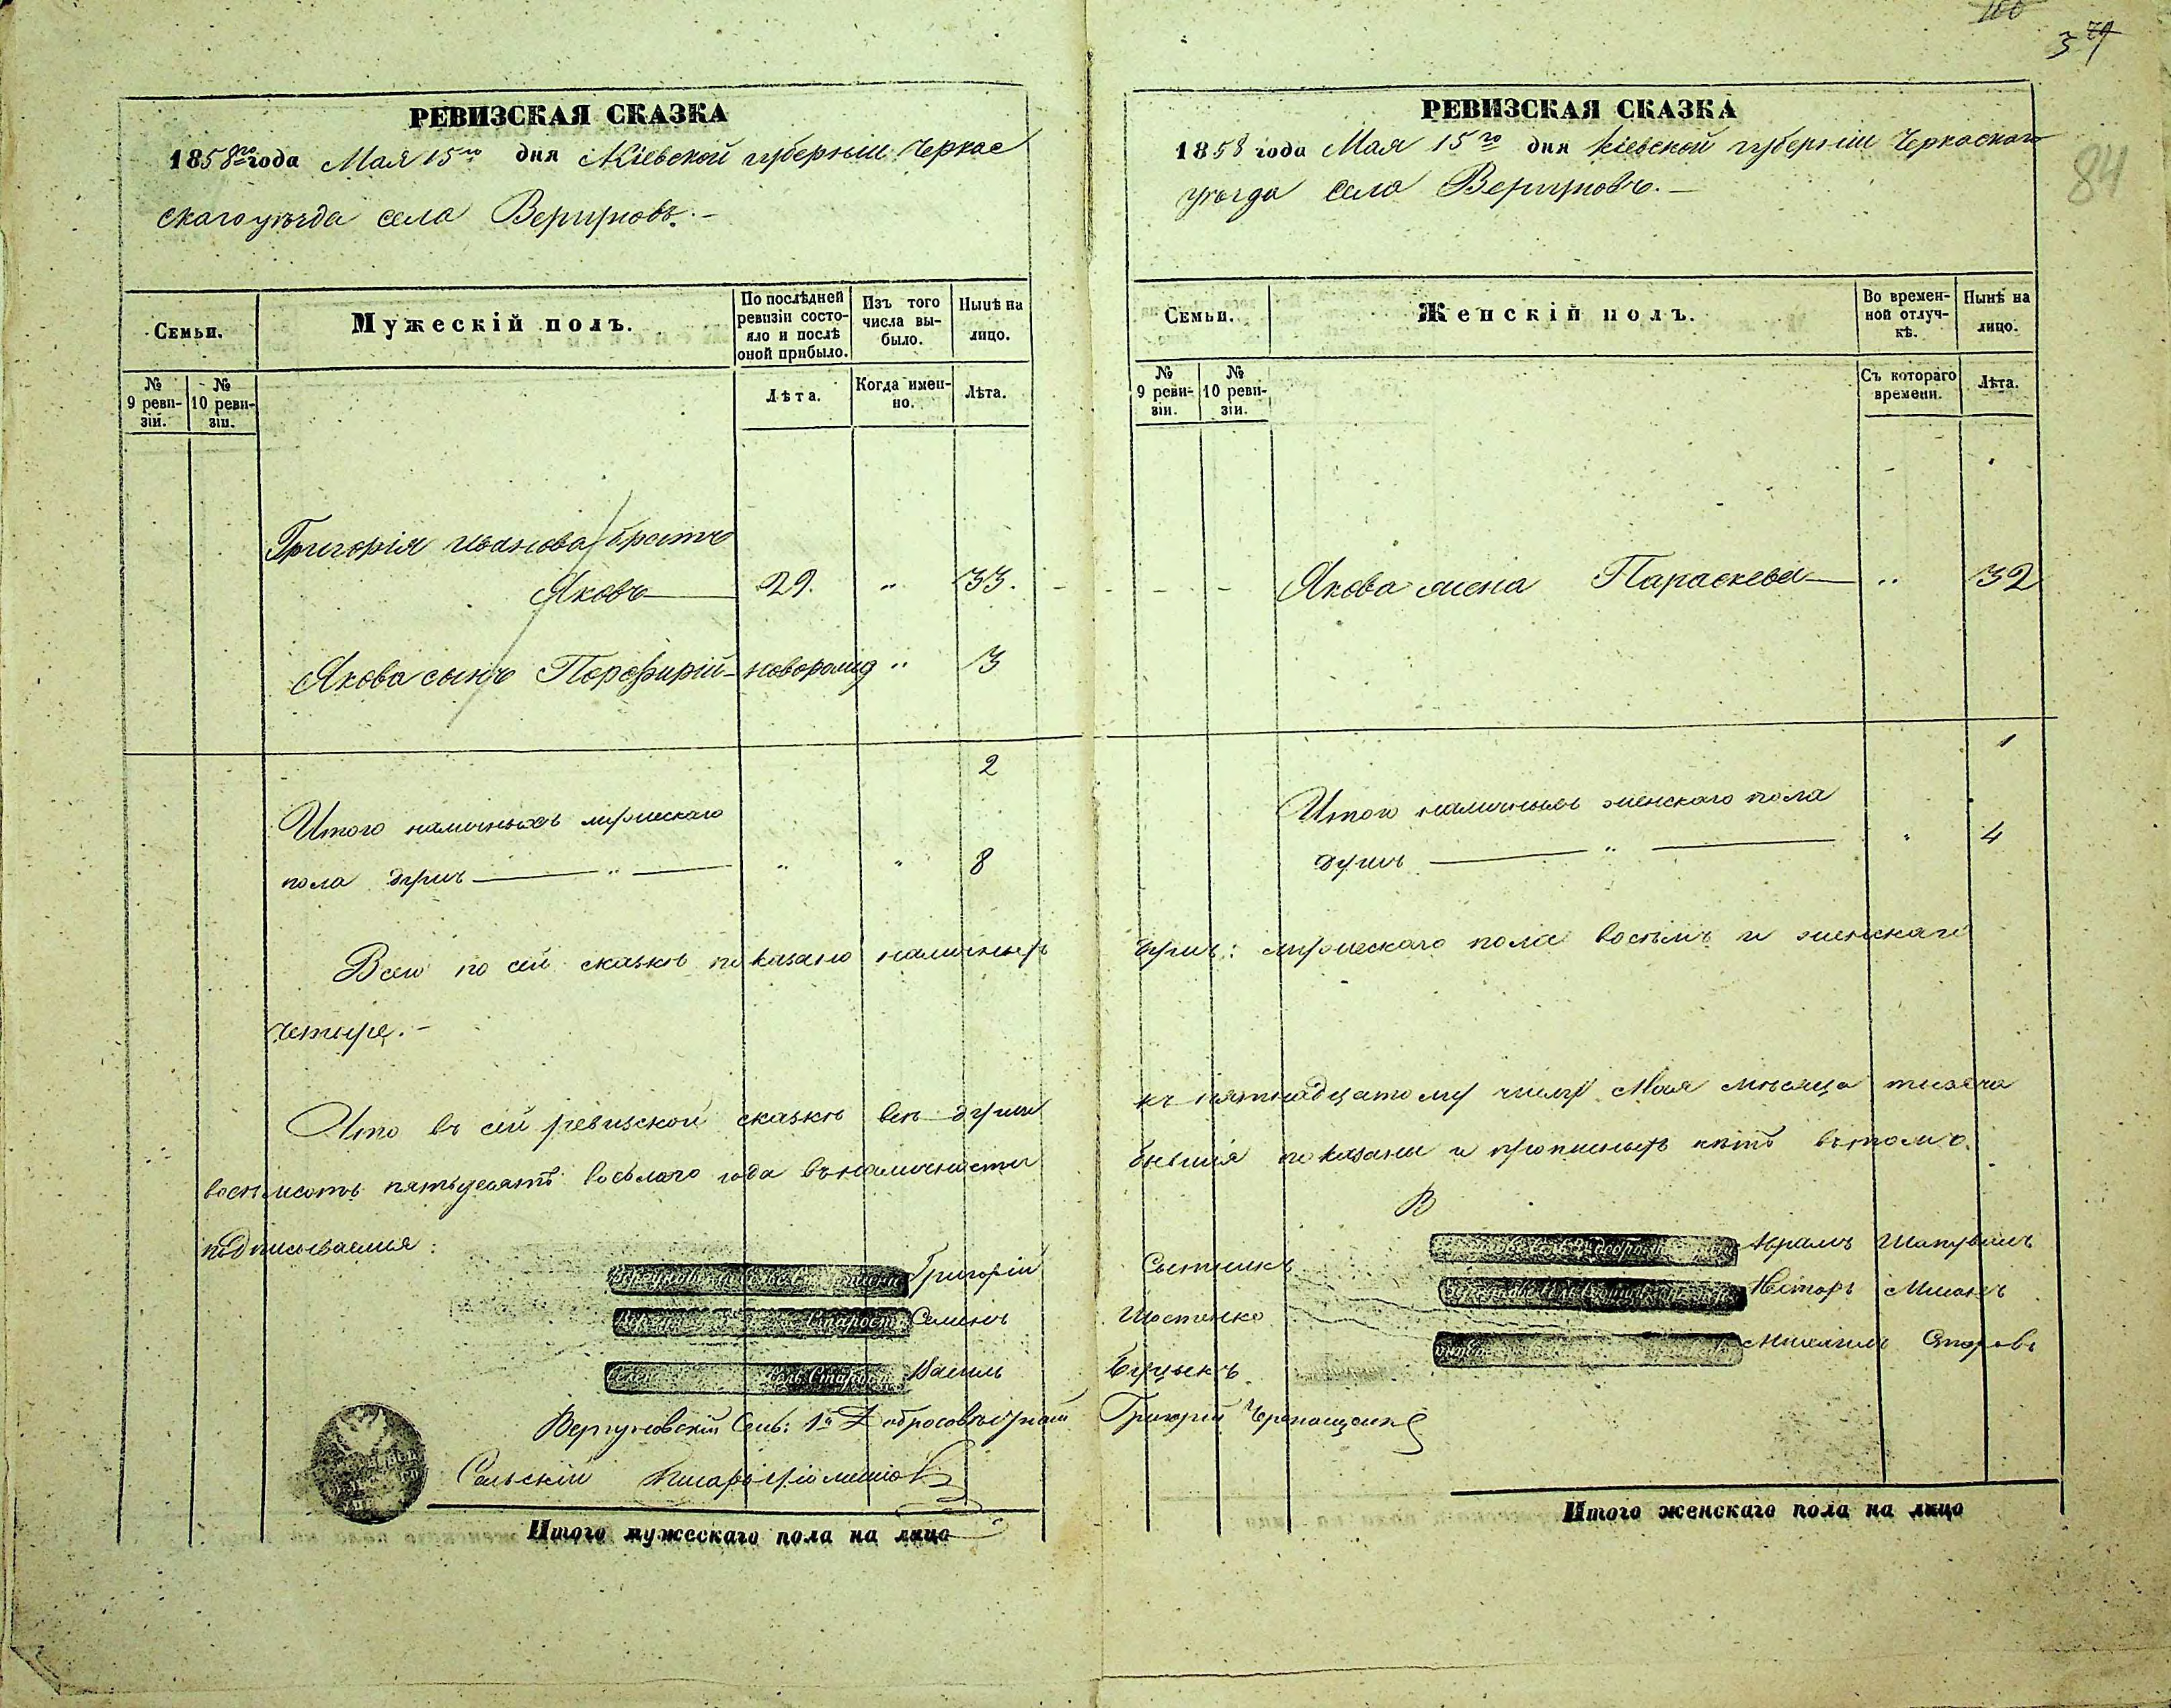 100
3 79
84
РЕВИЗСКАЯ СКАЗКА
1858го года Мая 15го дня Кіевской губерніи Черкас
скаго уѣзда села Вергуновъ.-
Семьи.
Мужескій полъ.
По послѣдней ревизіи состояло и послѣ оной прибыло.
Изъ того числа выбыло.
Нынѣ на лицо.
№ 9 ревизіи.
№ 10 ревизіи.
Лѣта.
Когда именно.
Лѣта.
Григорія Иванова братъ
Яковъ 29. " 33.
Якова сынъ Порфирій новорожд " 3
2
Итого наличныхъ мужескаго
пола душъ " " " 8
РЕВИЗСКАЯ СКАЗКА
1858 года Мая 15го дня Кіевской губерніи Черкаскаго
уѣзда села Вергуновъ.-
Семьи.
Женскій полъ.
Во временной отлучкѣ.
Нынѣ на лицо.
№ 9 ревизіи.
№ 10 ревизіи.
Съ котораго времени.
Лѣта.
Якова жена Параскева " 32
1
Итого наличныхъ женскаго пола
душъ " " 4
Всего по сей сказкѣ показано наличныхъ душъ: мужескаго пола восемь и женскаго
четыре.-
Что въ сей ревизской сказкѣ всѣ души къ пятнадцатому числу Мая мѣсяца тысяча
восемьсотъ пятьдесятъ восьмого года въ наличности бывшія показаны и прописныхъ нѣтъ въ томъ
подписываемся:
Григорій Сытникъ
Старост Семенъ Шостенко
Сель. Старос Василь Буцыкъ
Вергуновскій Сель: 1й Добросовѣстный Григорій
Сельскій Писарь
Абрамъ
Несторъ
Михаилъ
Итого мужескаго пола на лицо
Итого женскаго пола на лицо